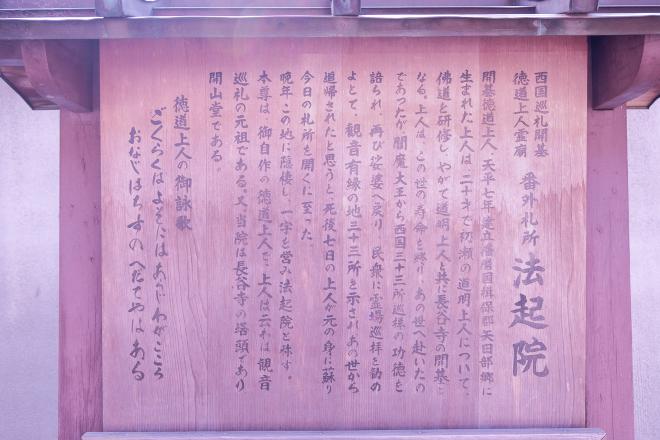 西国巡礼開基
徳道上人霊廟
番外札所 法起院
開基徳道上人、天平七年建立播磨国揖保郡矢田部郷に
生まれた上人は、二十才で初瀬の道明上人について、
佛道を研修し、やがて道明上人と共に長谷寺の開基と
なる。上人は、この世の寿命を終り、あの世へ赴いたの
であったが閻魔大王から西国三十三所巡拝の功徳を
語られ、再び娑婆へ戻り、民衆に霊場巡拝を勧め
よとて、観音有縁の地三十三所を示されあの世から
追帰されたと思うと死後七日の上人が元の身に蘇り
今日の札所を開くに至った
晩年この地に隠棲し、一宇を営み法起院と称す。
本尊は、御自作の徳道上人で、上人は云わば観音
巡礼の元祖である。又当院は長谷寺の塔頭であり
開山堂である。
徳道上人の御詠歌
ごくらくはよそにはあらじわがこころ
おなじはちすのへだてやはある